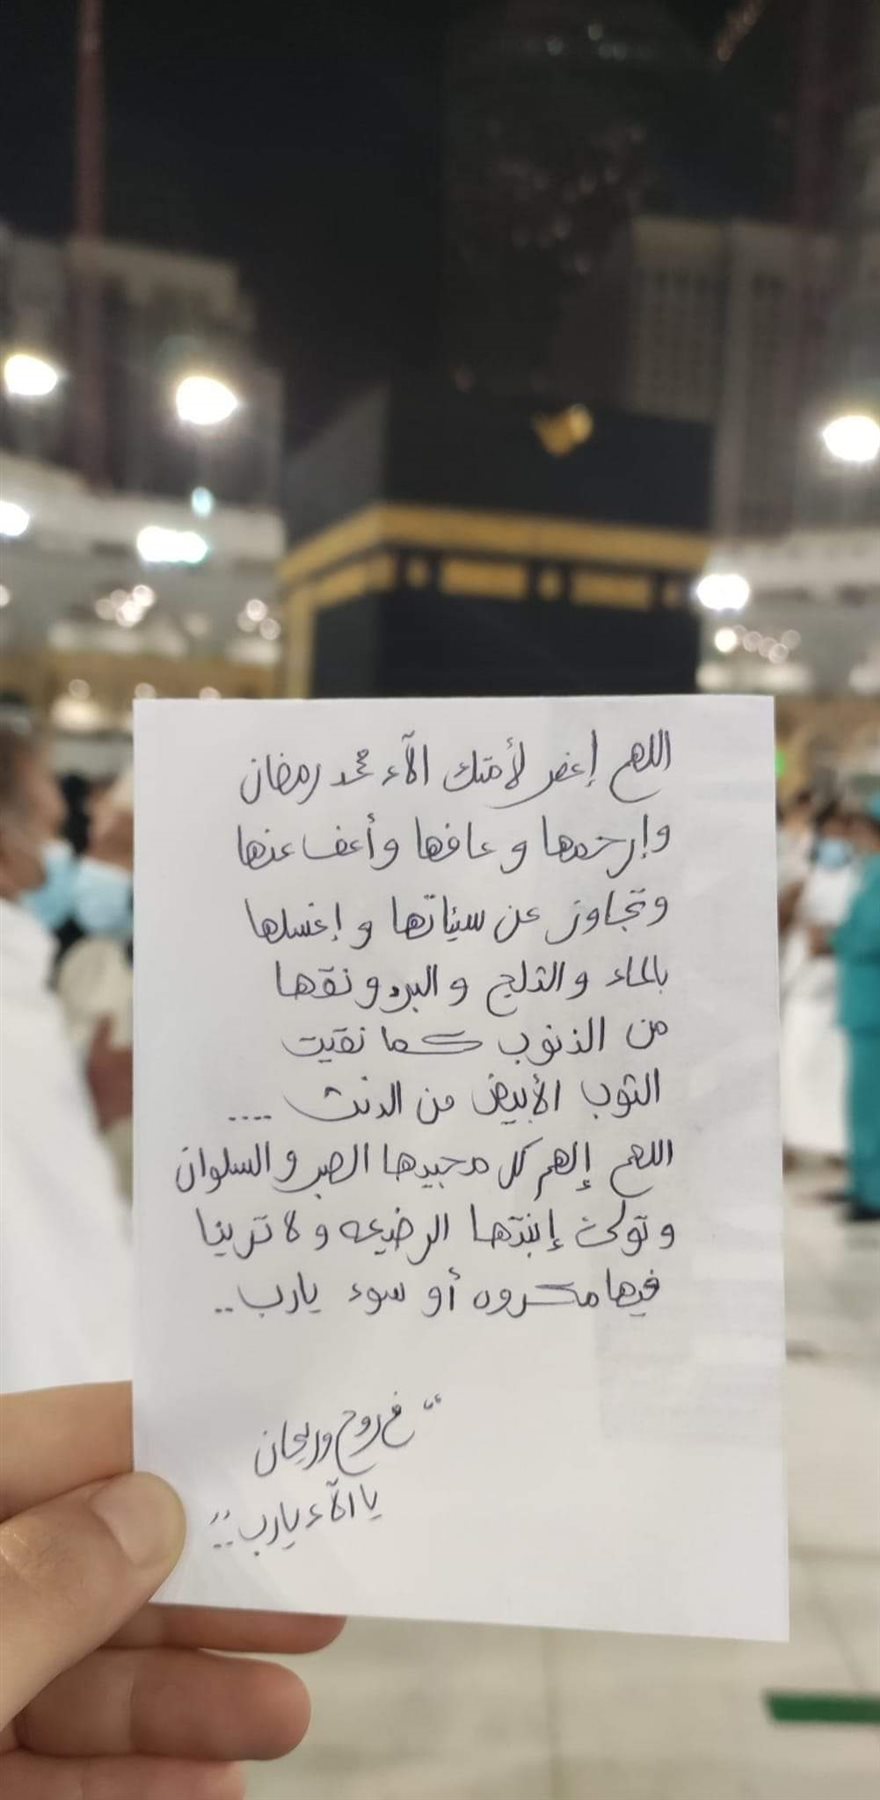 اللهم إغفر لأمتك الآء محمد رمضان
وإرحمها وعافها وأعف عنها
وتجاوز عن سيئاتها وإغسلها
بالماء والثلج والبرد ونقها
من الذنوب كما نقيت
الثوب الأبيض من الدنث ....
اللهم إلهم كل محبيها الصبر والسلوان
وتولى إبنتها الرضيعه ولا ترينا
فيها مكروه أو سوء يارب..
“ في روح وريحان
يا الآء يارب.. ”